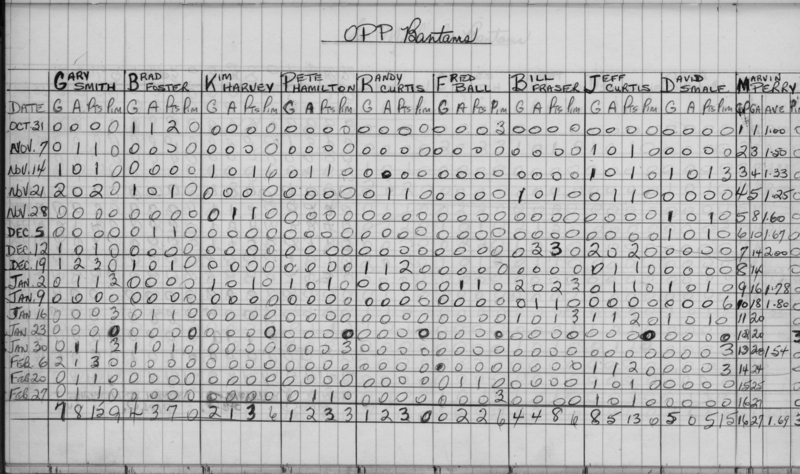 OPP Bantams
GARY SMITH BRAD FOSTER KIM HARVEY PETE HAMILTON RANDY CURTIS FRED BALL BILL FRASER JEFF CURTIS DAVID SMALE MARVIN PERRY
DATE G A Pts Pim G A Pts Pim G A Pts Pim G A Pts Pim G A Pts Pim G A Pts Pim G A Pts Pim G A Pts Pim G A Pts Pim GP GA AVE
OCT 31 0 0 0 0 1 1 2 0 0 0 0 0 0 0 0 0 0 0 0 0 0 0 0 3 0 0 0 0 0 0 0 0 0 0 0 0 1 1 1.00
NOV. 7 0 1 1 0 0 0 0 0 0 0 0 0 0 0 0 0 0 0 0 0 0 0 0 0 0 0 0 0 1 0 1 0 0 0 0 0 2 3 1.50
NOV. 14 1 0 1 0 0 0 0 0 1 0 1 6 0 1 1 0 0 0 0 0 0 0 0 0 1 0 1 0 1 0 1 3 3 4 1.33
NOV 21 2 0 2 0 1 0 1 0 0 0 0 0 0 0 0 0 0 1 1 0 0 0 0 0 1 0 1 0 0 1 1 0 0 0 0 0 4 5 1.25
NOV. 28 0 0 0 0 0 0 0 0 0 1 1 0 0 0 0 0 0 0 0 0 0 0 0 0 0 0 0 0 0 0 0 0 1 0 1 0 5 8 1.60
DEC. 5 0 0 0 0 0 1 1 0 0 0 0 0 0 0 0 0 0 0 0 0 0 0 0 0 0 0 0 0 0 0 0 0 1 0 1 0 6 10 1.67
DEC. 12 1 0 1 0 0 0 0 0 0 0 0 0 0 0 0 0 0 0 0 0 0 0 0 0 0 3 3 0 2 0 2 0 0 0 0 0 7 14 2.00
DEC. 19 1 2 3 0 1 0 1 0 0 0 0 0 0 0 0 0 1 1 2 0 0 0 0 0 0 0 0 0 0 1 1 0 0 0 0 0 8 14
JAN. 2 0 1 1 3 0 0 0 0 1 0 1 0 1 0 1 0 0 0 0 0 0 1 1 0 2 0 2 3 0 1 1 0 1 0 1 0 9 16 1.78
JAN. 9 0 0 0 0 0 0 0 0 0 0 0 0 0 0 0 0 0 0 0 0 0 0 0 0 0 1 1 0 0 0 0 0 0 0 0 6 10 18 1.80
JAN 16 0 0 0 3 0 1 1 0 0 0 0 0 0 0 0 0 0 0 0 0 0 0 0 0 1 0 1 3 1 1 2 0 1 0 1 0 11 20
JAN 23 0 0 0 0 0 0 0 0 0 0 0 0 0 0 0 0 0 0 0 0 0 0 0 0 0 0 0 0 0 0 0 0 0 0 0 0 20
JAN 30 0 1 1 3 1 0 1 0 0 0 0 0 0 0 0 3 0 0 0 0 0 0 0 0 0 0 0 0 0 0 0 0 0 0 0 3 13 20 1.54
FEB. 6 2 1 3 0 0 0 0 0 0 0 0 0 0 0 0 0 0 0 0 0 0 0 0 0 0 0 0 0 1 1 2 0 0 0 0 3 14 24
FEB 20 0 1 1 0 0 0 0 0 0 0 0 0 0 0 0 0 0 0 0 0 0 1 1 0 0 0 0 0 1 0 1 0 0 0 0 0 15 25
FEB. 27 0 1 1 0 0 0 0 0 0 0 0 0 0 1 1 0 0 0 0 0 0 0 0 3 0 0 0 0 1 0 1 0 0 0 0 0 16 27
7 8 15 9 4 3 7 0 2 1 3 6 1 2 3 3 1 2 3 0 0 2 2 6 4 4 8 6 8 5 13 0 5 0 5 15 16 27 1.69